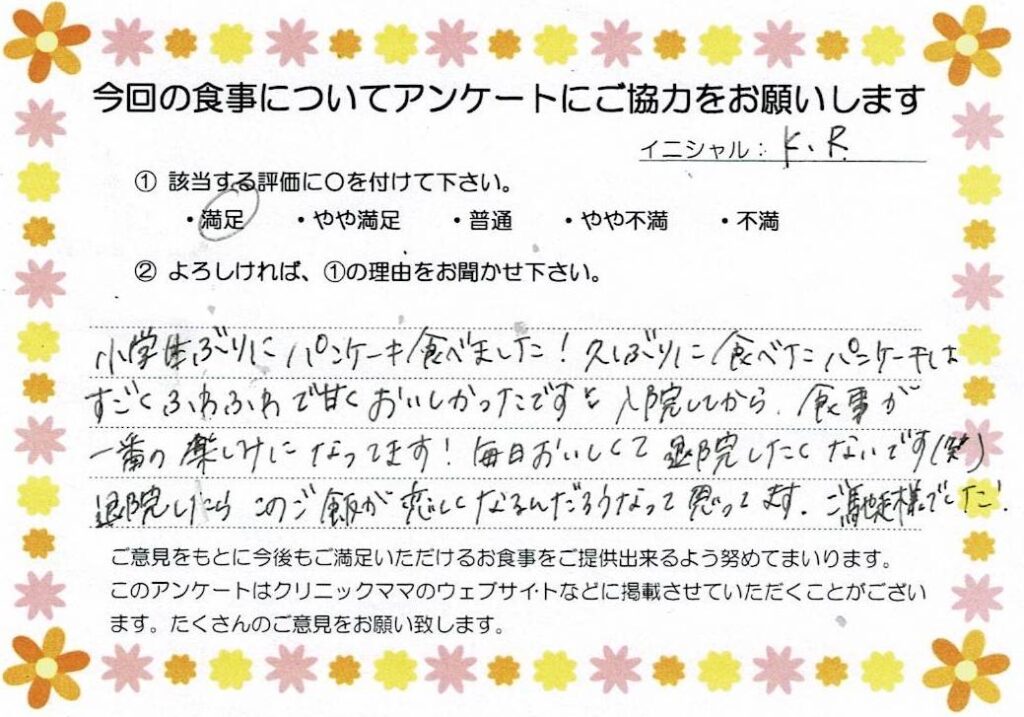 今回の食事についてアンケートにご協力をお願いします
イニシャル： K、R
① 該当する評価に○を付けて下さい。
・満足 ・やや満足 ・普通 ・やや不満 ・不満
② よろしければ、①の理由をお聞かせ下さい。
小学生ぶりに パンケーキ食べました！久しぶりに食べたパンケーキは
すごくふわふわで甘くおいしかったです 入院してから、食事が
一番の楽しみになってます！毎日おいしくて退院したくないです(笑)
退院したらこのご飯が恋しくなるんだろうなって思ってます。ご馳走様でした!
ご意見をもとに今後もご満足いただけるお食事をご提供出来るよう努めてまいります。
このアンケートはクリニックママのウェブサイトなどに掲載させていただくことがござい
ます。たくさんのご意見をお願い致します。